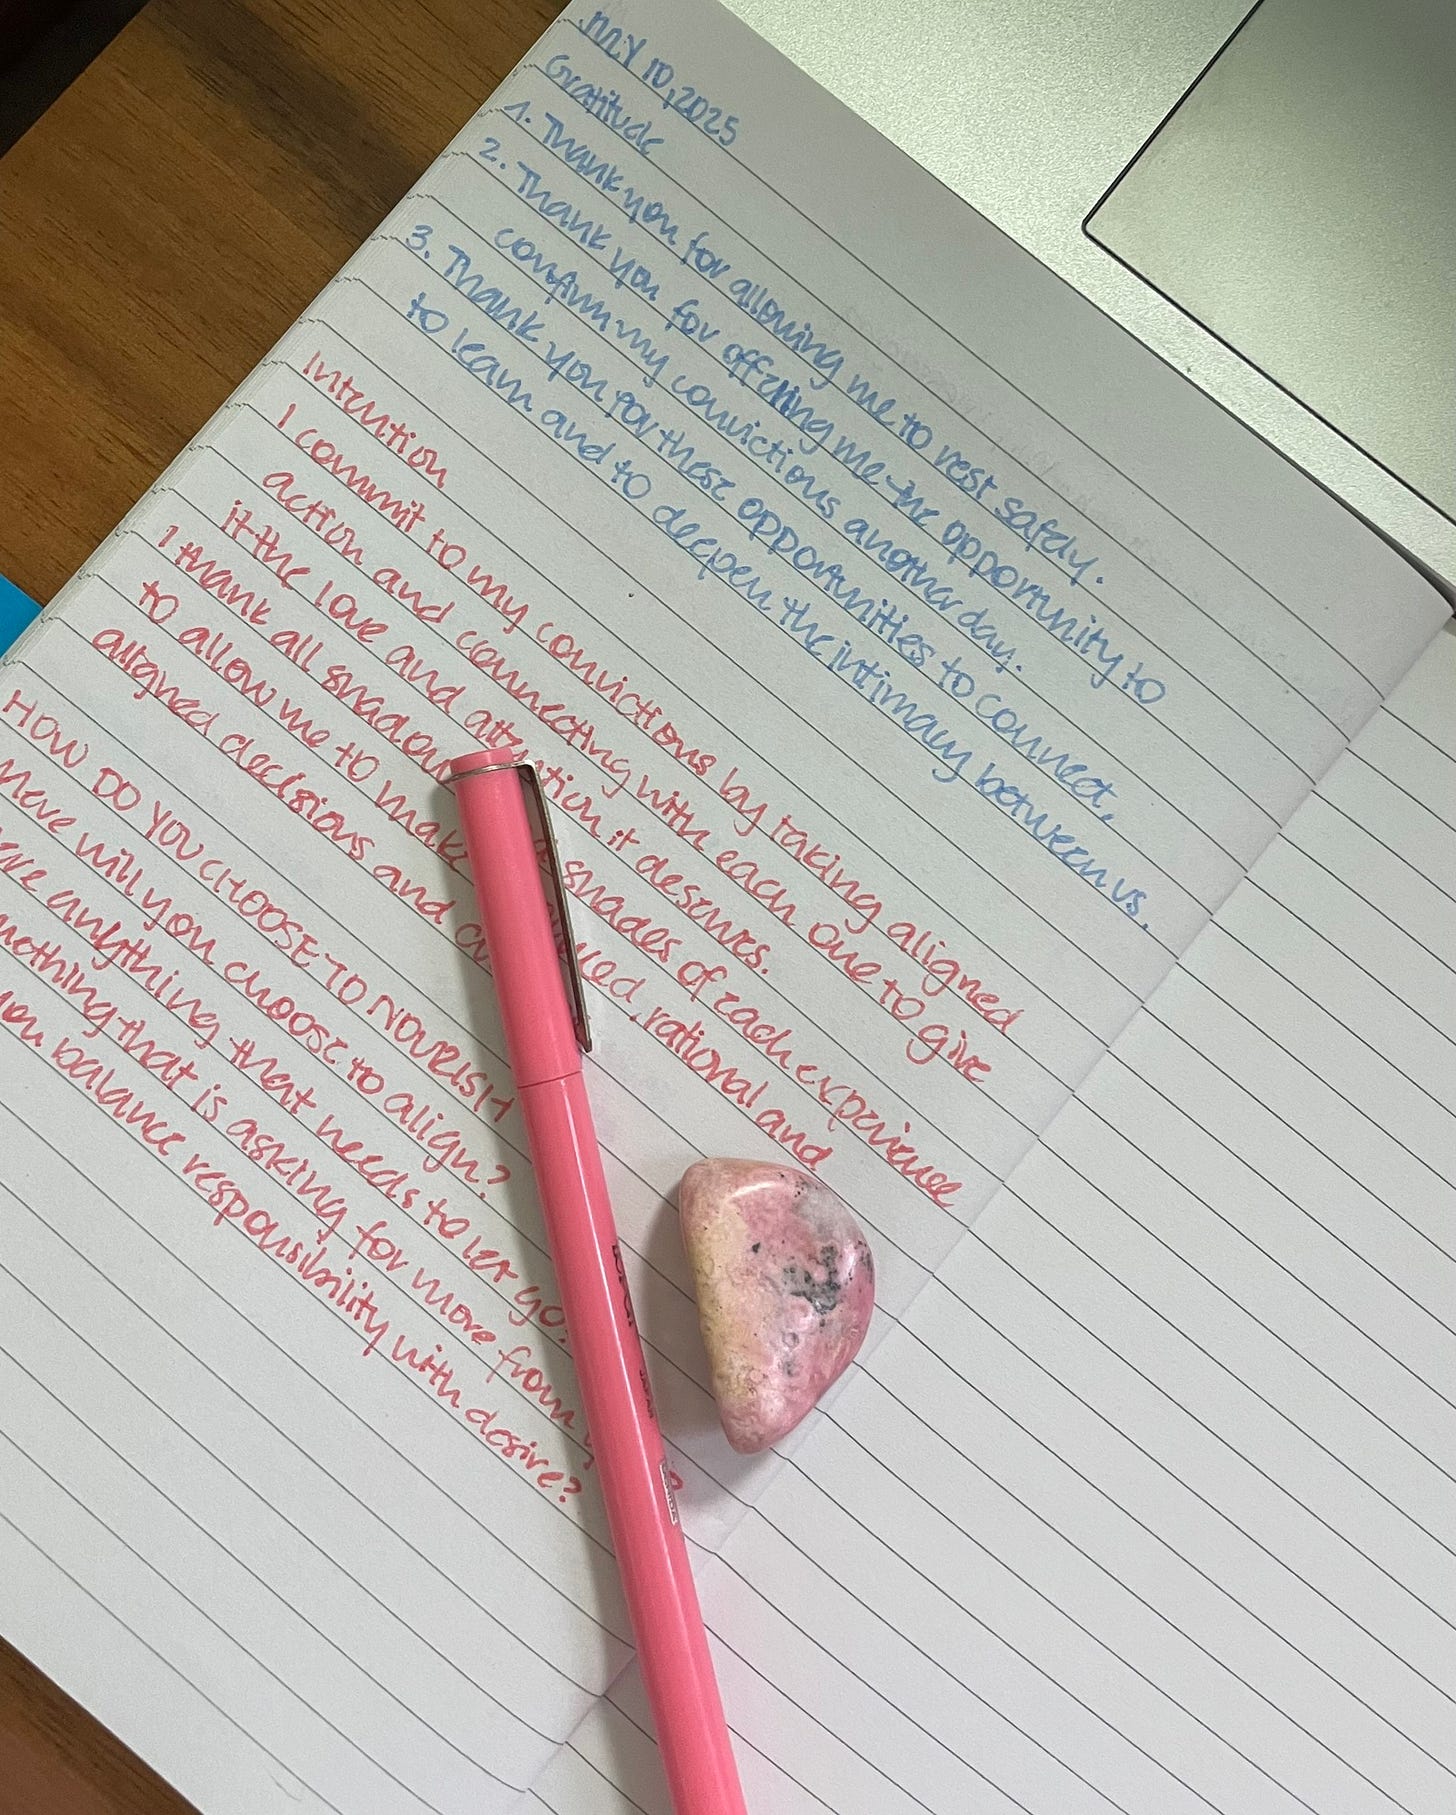 MY 10, 2025
Gratitude
1. Thank you for allowing me to rest safely.
2. Thank you for offering me the opportunity to
confirm my convictions another day.
3. Thank you for these opportunities to connect,
to learn and to deepen the intimacy between us.
Intention
I commit to my convictions by taking aligned
action and connecting with each one to give
it the love and attention it deserves.
I thank all shades of each experience
to allow me to make rational and
aligned decisions and
HOW DO YOU CHOOSE TO NOURISH
will you choose to align?
anything that needs to let go?
that is asking for more from
you balance responsibility with desire?